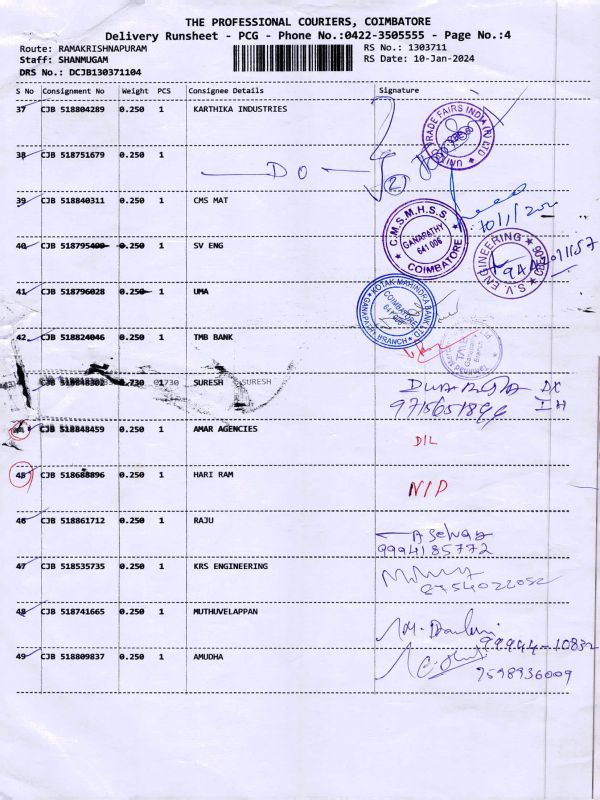 THE PROFESSIONAL COURIERS, COIMBATORE
Delivery Runsheet - PCG - Phone No.:0422-3505555 - Page No.:4
Route: RAMAKRISHNAPURAM RS No.: 1303711
Staff: SHANMUGAM RS Date: 10-Jan-2024
DRS No.: DCJB130371104
S No Consignment No Weight PCS Consignee Details Signature
37 CJB 518804289 0.250 1 KARTHIKA INDUSTRIES
TRADE FAIRS INDIA (P) LTD
38 CJB 518751679 0.250 1 DO 2
39 CJB 518840311 0.250 1 CMS MAT
C.M.S.M.H.S.S. GANAPATHY 641 006 COIMBATORE
40 CJB 518795 0.250 1 SV ENG
S.V. ENGINEERING
41 CJB 518796028 0.250 1 UMA
KOTAK MAHINDRA BANK LTD COIMBATORE BRANCH
42 CJB 518824046 0.250 1 TMB BANK
CJB 0.730 1 SURESH SURESH
DX
9715651899 IH
CJB 518848459 0.250 1 AMAR AGENCIES D/L
45 CJB 518688896 0.250 1 HARI RAM N/P
46 CJB 518861712 0.250 1 RAJU
9994185772
47 CJB 518535735 0.250 1 KRS ENGINEERING
8754022052
48 CJB 518741665 0.250 1 MUTHUVELAPPAN
99944-10832
49 CJB 518809837 0.250 1 AMUDHA
9598936009